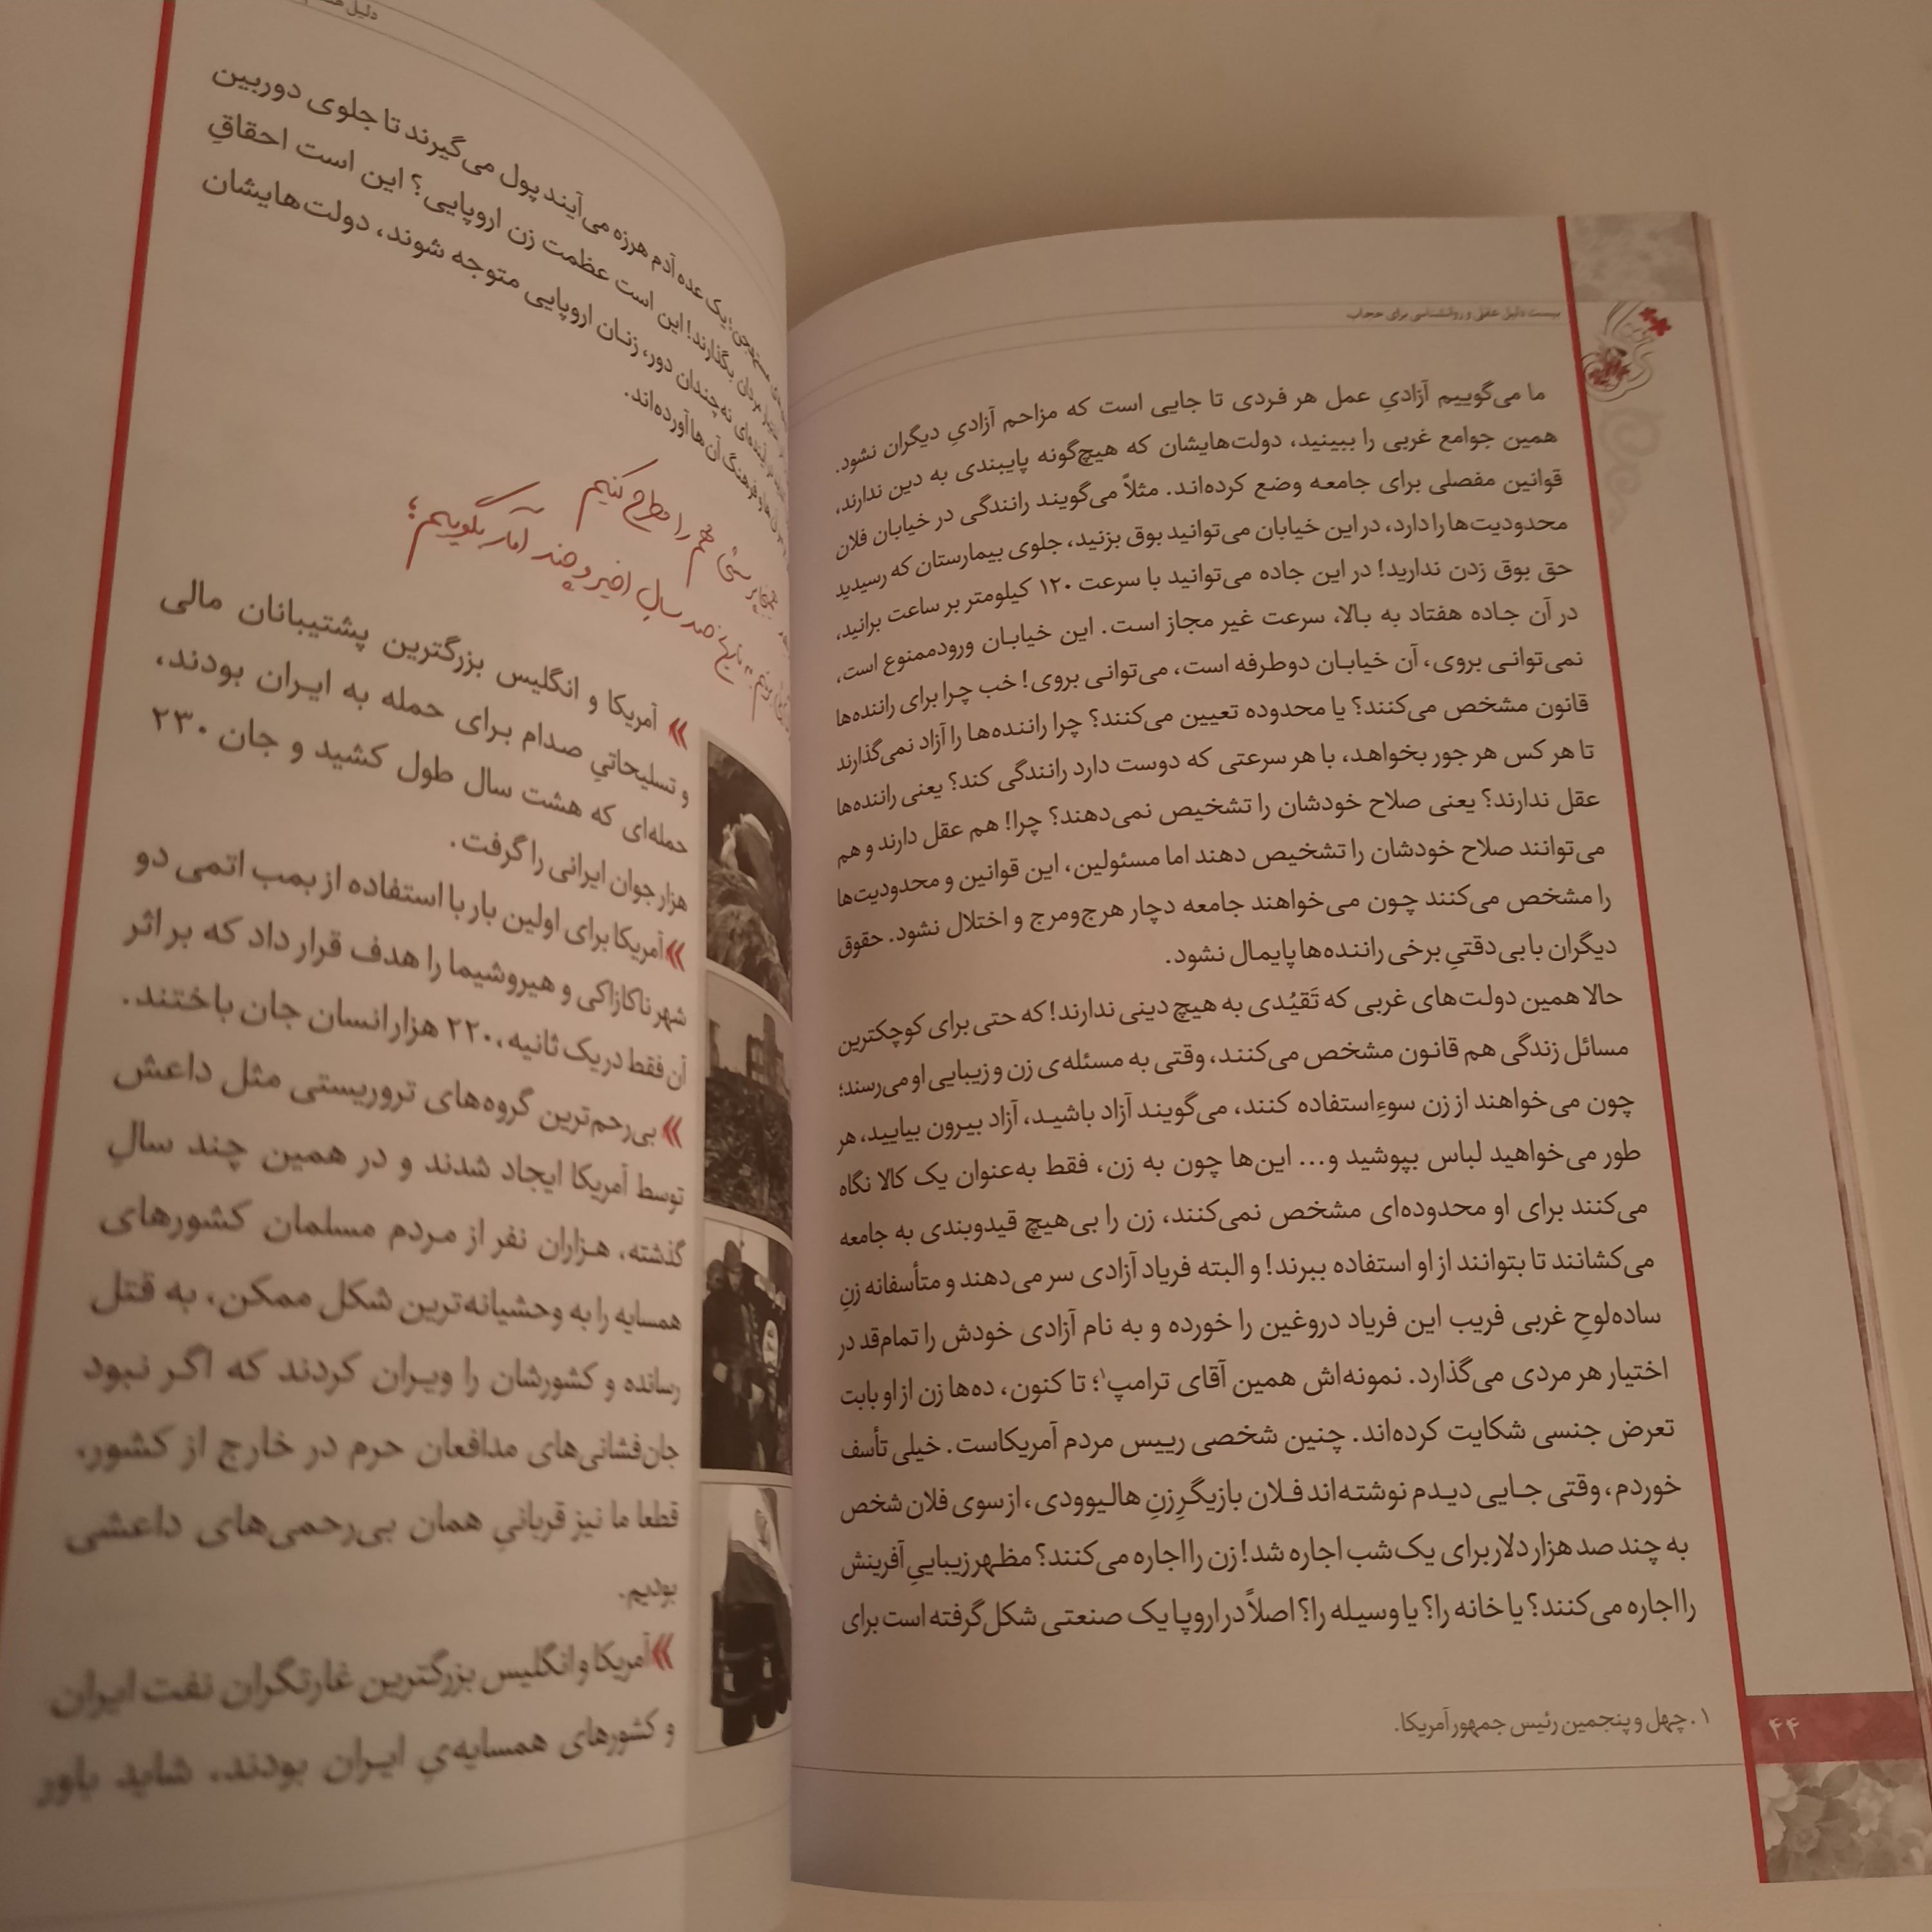 بیست دلیل عقلی و روانشناسی برای حجاب
ما می‌گوییم آزادیِ عمل هر فردی تا جایی است که مزاحم آزادیِ دیگران نشود.
همین جوامع غربی را ببینید، دولت‌هایشان که هیچ‌گونه پایبندی به دین ندارند،
قوانین مفصلی برای جامعه وضع کرده‌اند. مثلاً می‌گویند رانندگی در خیابان فلان
محدودیت‌ها را دارد، در این خیابان می‌توانید بوق بزنید، جلوی بیمارستان که رسیدید
حق بوق زدن ندارید! در این جاده می‌توانید با سرعت ۱۲۰ کیلومتر بر ساعت برانید،
در آن جاده هفتاد به بالا، سرعت غیر مجاز است. این خیابان ورودممنوع است،
نمی‌توانی بروی، آن خیابان دوطرفه است، می‌توانی بروی! خب چرا برای راننده‌ها
قانون مشخص می‌کنند؟ یا محدوده تعیین می‌کنند؟ چرا راننده‌ها را آزاد نمی‌گذارند
تا هر کس هر جور بخواهد، با هر سرعتی که دوست دارد رانندگی کند؟ یعنی راننده‌ها
عقل ندارند؟ یعنی صلاح خودشان را تشخیص نمی‌دهند؟ چرا! هم عقل دارند و هم
می‌توانند صلاح خودشان را تشخیص دهند اما مسئولین، این قوانین و محدودیت‌ها
را مشخص می‌کنند چون می‌خواهند جامعه دچار هرج‌ومرج و اختلال نشود. حقوق
دیگران با بی‌دقتیِ برخی راننده‌ها پایمال نشود.
حالا همین دولت‌های غربی که تَقیُدی به هیچ دینی ندارند! که حتی برای کوچکترین
مسائل زندگی هم قانون مشخص می‌کنند، وقتی به مسئله‌ی زن و زیبایی او می‌رسند؛
چون می‌خواهند از زن سوءِاستفاده کنند، می‌گویند آزاد باشید، آزاد بیرون بیایید، هر
طور می‌خواهید لباس بپوشید و... این‌ها چون به زن، فقط به‌عنوان یک کالا نگاه
می‌کنند برای او محدوده‌ای مشخص نمی‌کنند، زن را بی‌هیچ قیدوبندی به جامعه
می‌کشانند تا بتوانند از او استفاده ببرند! و البته فریاد آزادی سر می‌دهند و متأسفانه زنِ
ساده‌لوحِ غربی فریب این فریاد دروغین را خورده و به نام آزادی خودش را تمام‌قد در
اختیار هر مردی می‌گذارد. نمونه‌اش همین آقای ترامپ۱؛ تا کنون، ده‌ها زن از او بابت
تعرض جنسی شکایت کرده‌اند. چنین شخصی رییس مردم آمریکاست. خیلی تأسف
خوردم، وقتی جایی دیدم نوشته‌اند فلان بازیگرِ زنِ هالیوودی، از سوی فلان شخص
به چند صد هزار دلار برای یک شب اجاره شد! زن را اجاره می‌کنند؟ مظهر زیباییِ آفرینش
را اجاره می‌کنند؟ یا خانه را؟ یا وسیله را؟ اصلاً در اروپا یک صنعتی شکل گرفته است برای
۱. چهل و پنجمین رئیس جمهور آمریکا.
۴۴
دلیل
یک عده آدم هرزه می‌آیند پول می‌گیرند تا جلوی دوربین
بگذارند! این است عظمت زن اروپایی؟ این است احقاقِ
نه‌چندان دور، زنان اروپایی متوجه شوند، دولت‌هایشان
فرهنگ آن‌ها آورده‌اند.
هم را مطرح کنیم
صد سالِ اخیر و چند آمار بگوییم؛
» آمریکا و انگلیس بزرگترین پشتیبانان مالی
و تسلیحاتیِ صدام برای حمله به ایران بودند،
حمله‌ای که هشت سال طول کشید و جان ۲۳۰
هزار جوان ایرانی را گرفت.
» آمریکا برای اولین بار با استفاده از بمب اتمی دو
شهر ناکازاکی و هیروشیما را هدف قرار داد که بر اثر
آن فقط در یک ثانیه، ۲۲۰ هزار انسان جان باختند.
» بی‌رحم‌ترین گروه‌های تروریستی مثل داعش
توسط آمریکا ایجاد شدند و در همین چند سالِ
گذشته، هزاران نفر از مردم مسلمان کشورهای
همسایه را به وحشیانه‌ترین شکل ممکن، به قتل
رسانده و کشورشان را ویران کردند که اگر نبود
جان‌فشانی‌های مدافعان حرم در خارج از کشور،
قطعا ما نیز قربانیِ همان بی‌رحمی‌های داعشی
بودیم.
» آمریکا و انگلیس بزرگترین غارتگران نفت ایران
و کشورهای همسایه‌یِ ایران بودند. شاید باور